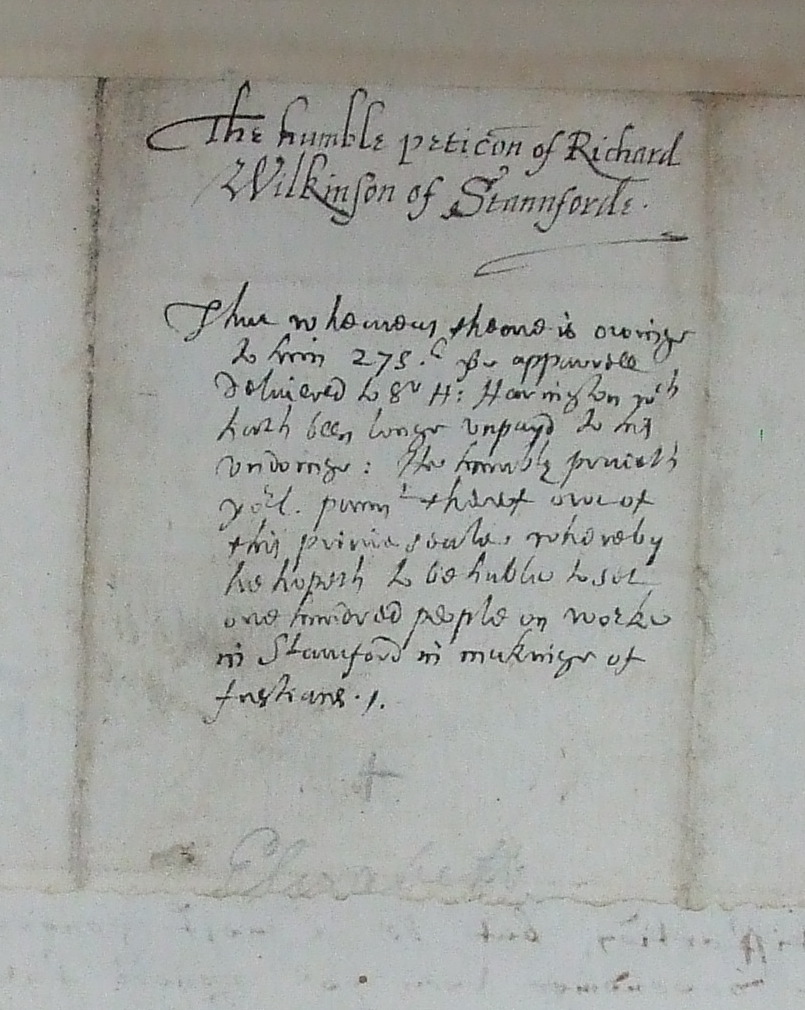 The humble petic̃on of Richard
Wilkinson of Stannforde.
That whereas theare is owinge
to him 275.£ for apparrell
Deliuered to Sr H: Harington wch
hath been longe vnpayd to his
vndoinge: He humbly praieth
yor L. paymt thereof out of
this priuie seale, whereby
he hopeth to be hable to set
one hundred people on worke
in Stamford in makinge of
fustians.
Elizabeth